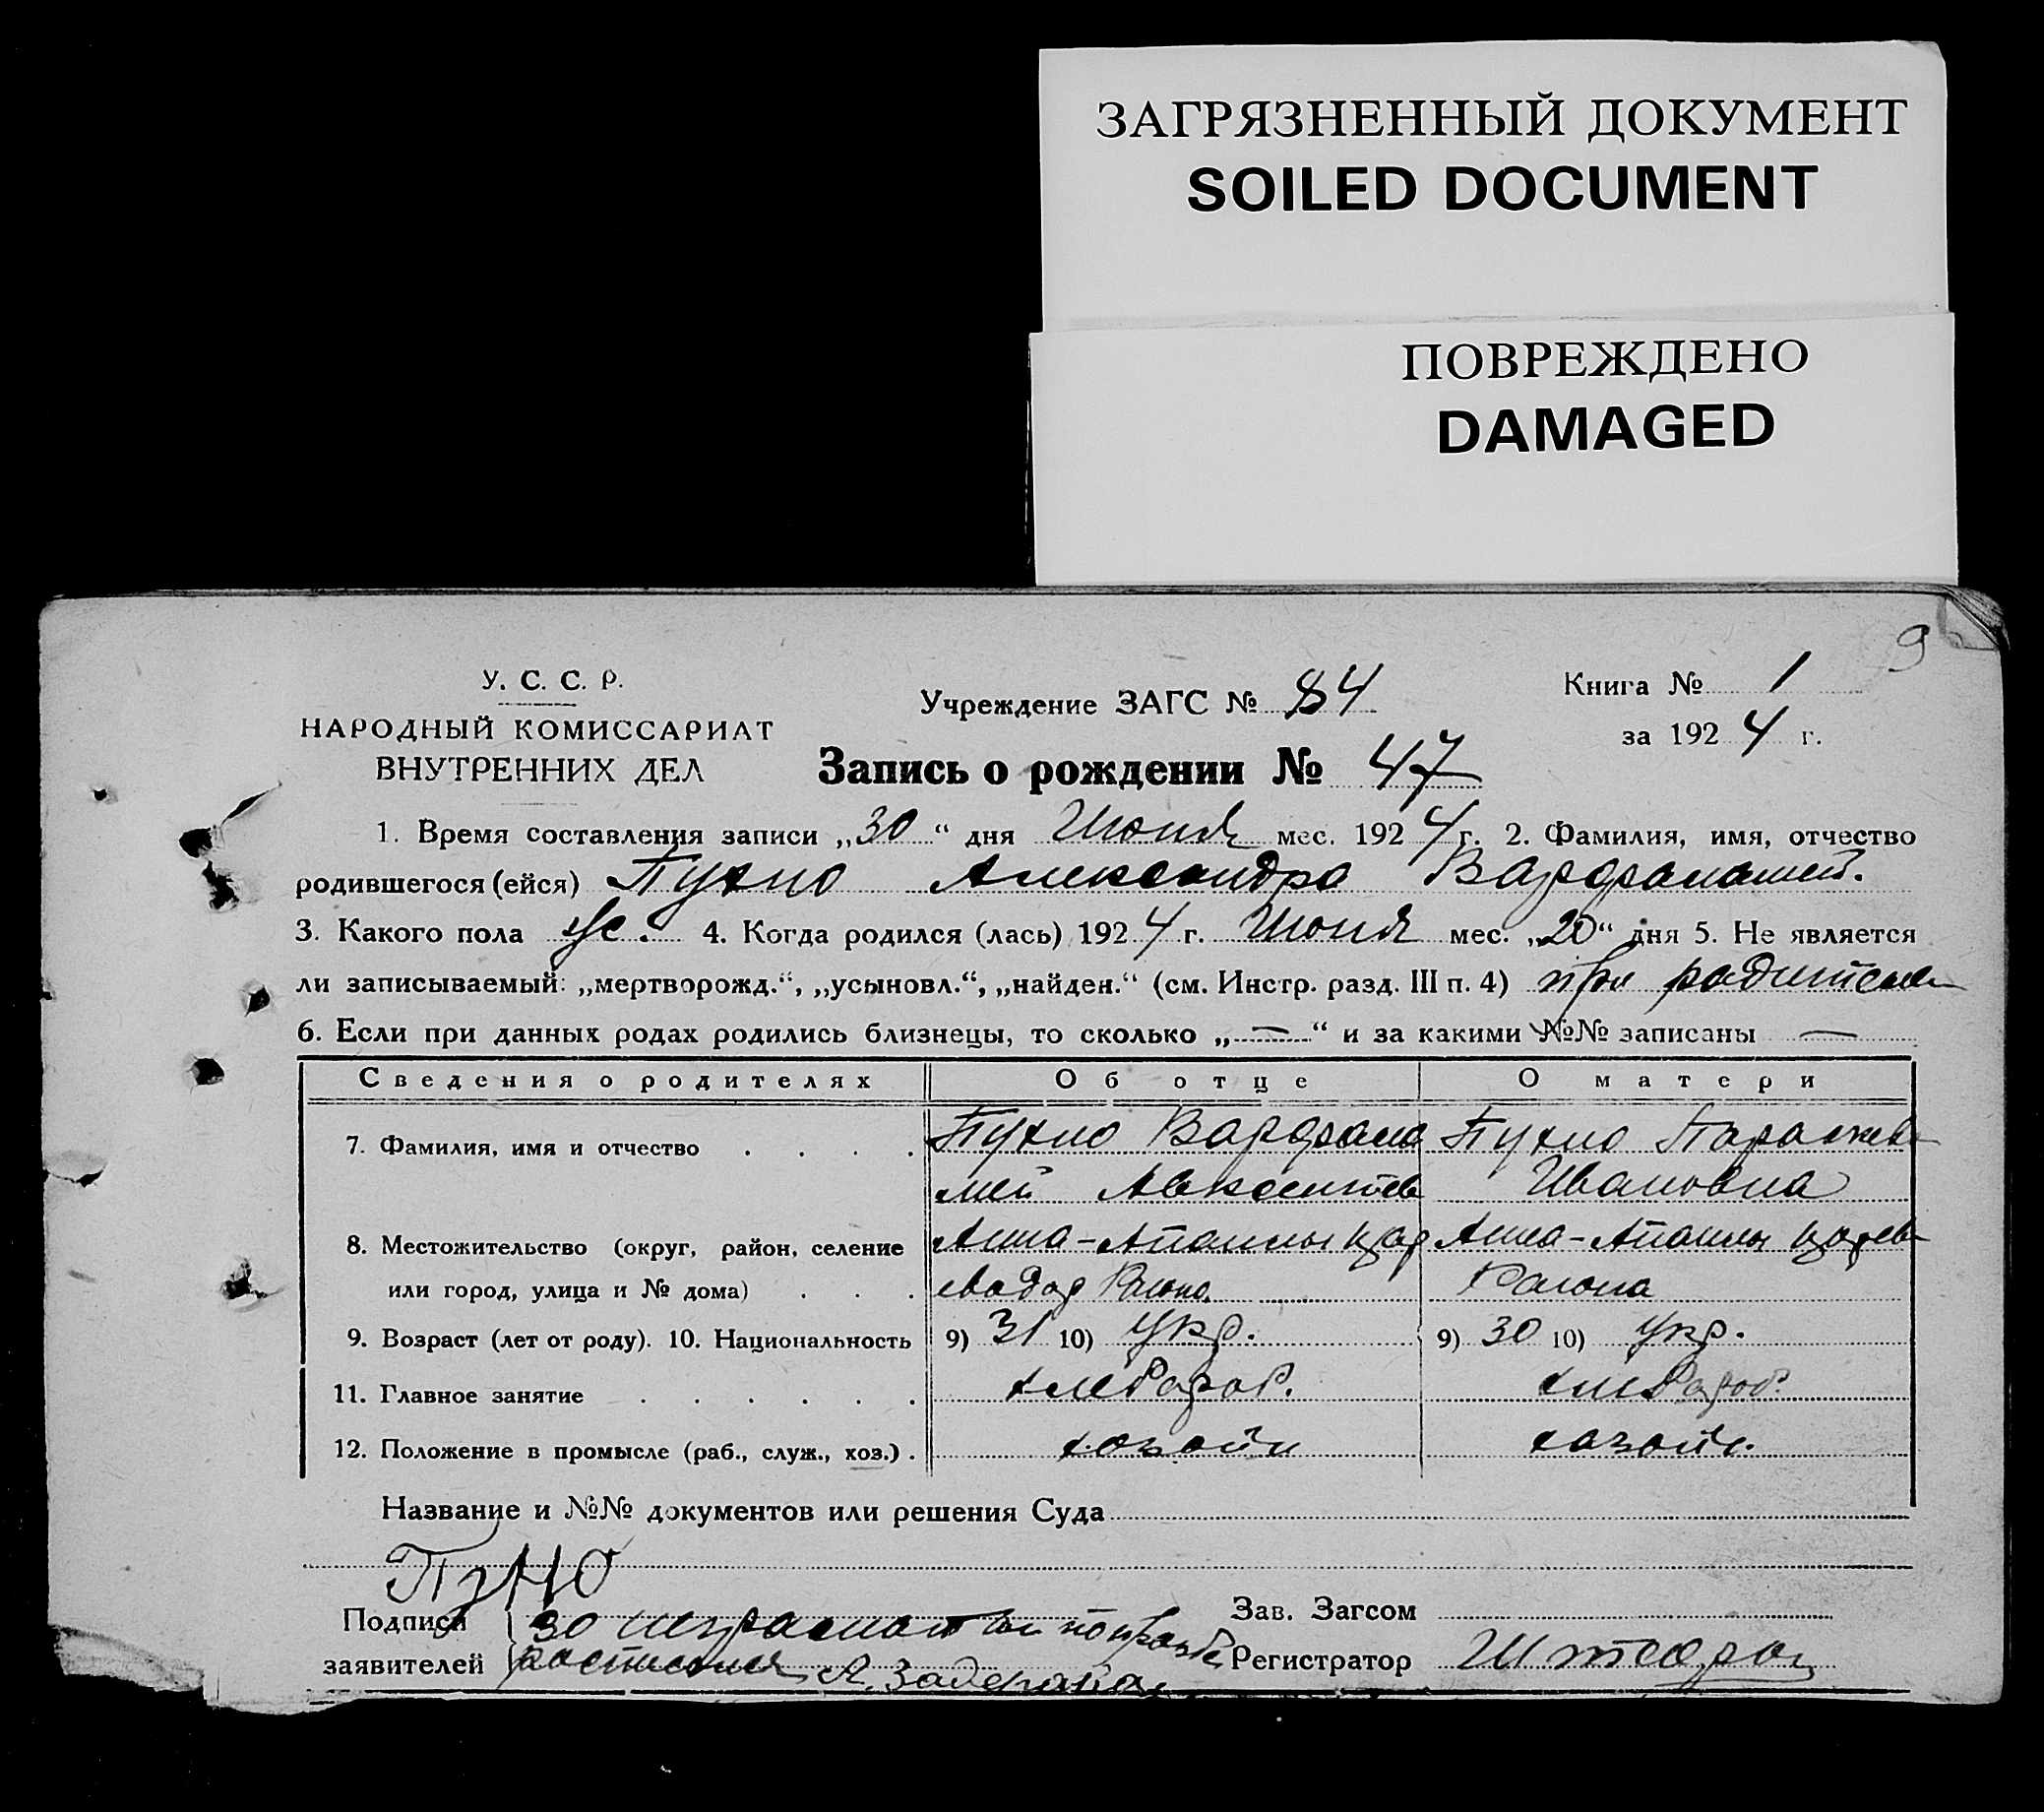 ЗАГРЯЗНЕННЫЙ ДОКУМЕНТ
SOILED DOCUMENT
ПОВРЕЖДЕНО
DAMAGED
9
У. С. С. Р.
НАРОДНЫЙ КОМИССАРИАТ
ВНУТРЕННИХ ДЕЛ
Учреждение ЗАГС № 84
Книга № 1
за 1924 г.
Запись о рождении № 47
1. Время составления записи „30“ дня Июня мес. 1924 г. 2. Фамилия, имя, отчество
родившегося (ейся) Пухно Александра
3. Какого пола ж. 4. Когда родился (лась) 1924 г. Июня мес. „20“ дня 5. Не является
ли записываемый: „мертворожд.“, „усыновл.“, „найден.“ (см. Инстр. разд. III п. 4) при
6. Если при данных родах родились близнецы, то сколько „—“ и за какими №№ записаны —
Сведения о родителях Об отце О матери
7. Фамилия, имя и отчество Пухно Варфоло Пухно Параскев
мей Авксентев Ивановна
8. Местожительство (округ, район, селение
или город, улица и № дома) Района
9. Возраст (лет от роду). 10. Национальность 9) 31 10) Укр. 9) 30 10) Укр.
11. Главное занятие хлебороб. хлебороб.
12. Положение в промысле (раб., служ., хоз.) хозяин
Название и №№ документов или решения Суда
Подписи
заявителей
за А. Задерака
Зав. Загсом
Регистратор